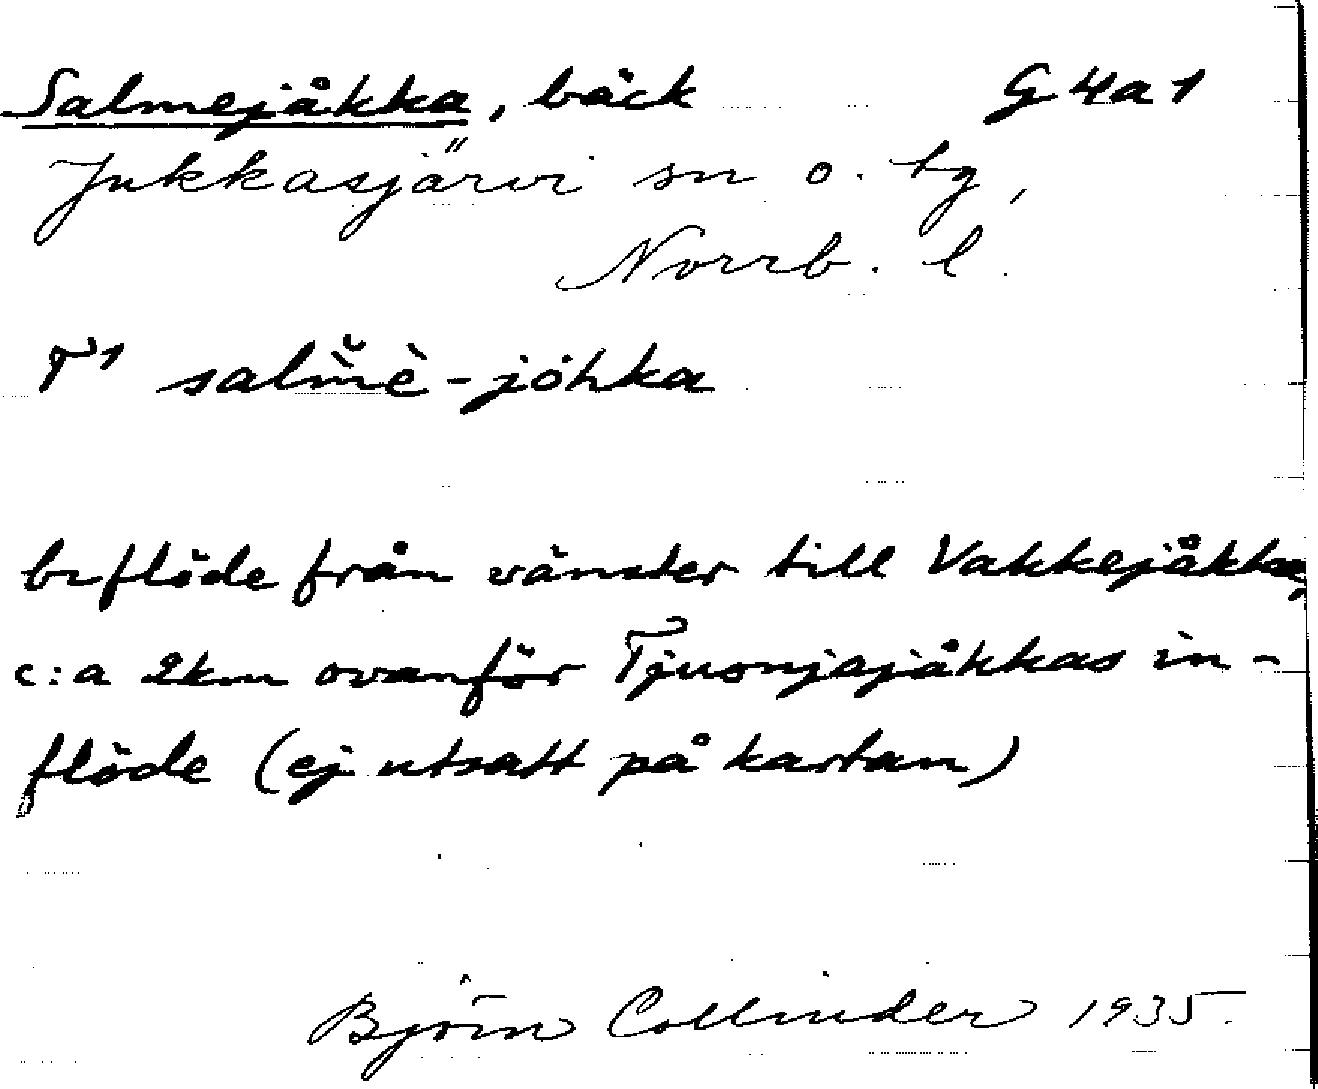 Salmejåkka, bäck G4a1
Jukkasjärvi sn o. tg,
Norrb. l.
T¹ salm̆̀è-jòhka
biflöde från vänster till Vakkejåkka,
c:a 2km ovanför Tjuonjajåkkas in-
flöde (ej utsatt på kartan)
Björn Collinder 1935.